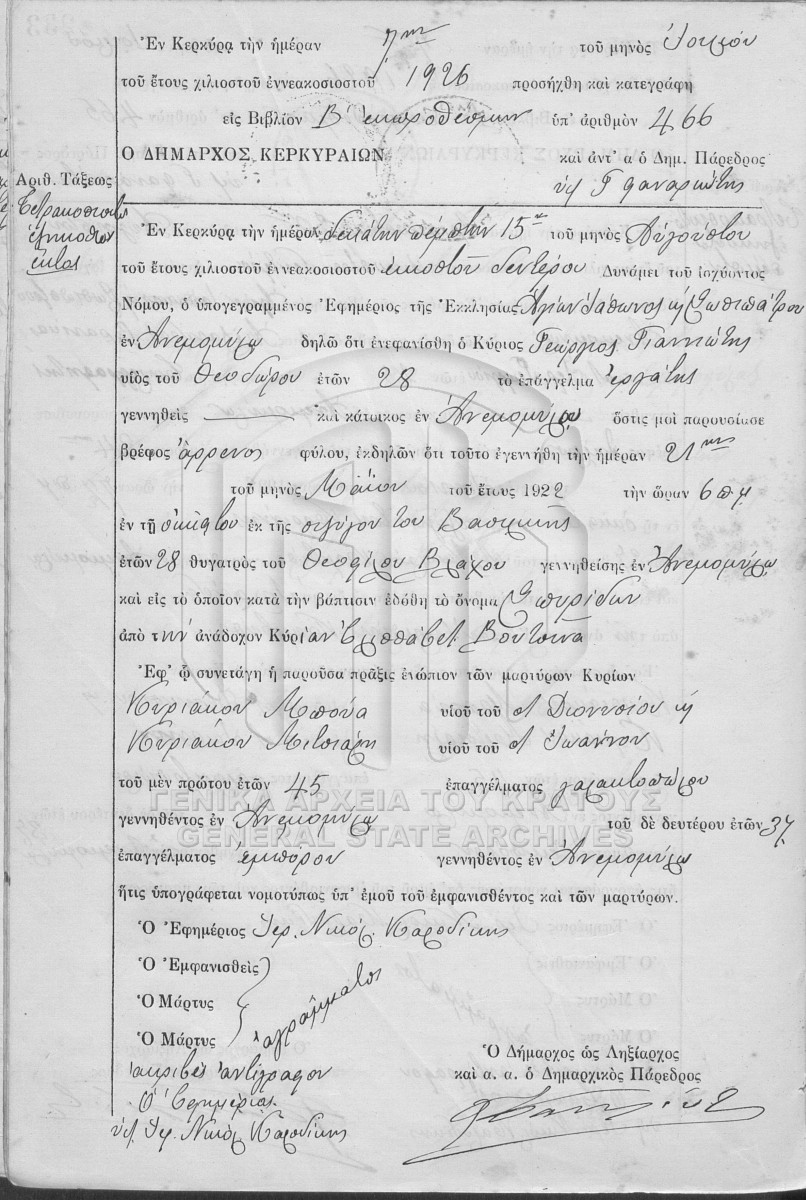 Ἐν Κερκύρᾳ τὴν ἡμέραν 7ην τοῦ μηνὸς Ἰουλίου
τοῦ ἔτους χιλιοστοῦ ἐννεακοσιοστοῦ 1926 προσήχθη καὶ κατεγράφη
εἰς Βιβλίον Β' ἐκπροθέσμων ὑπ' ἀριθμὸν 466
Ο ΔΗΜΑΡΧΟΣ ΚΕΡΚΥΡΑΙΩΝ καὶ ἀντ' α ὁ Δημ. Πάρεδρος
Ἀριθ. Τάξεως
Τετρακοσιοστὸν
ἑξηκοστὸν
ἕκτον
Ἐν Κερκύρᾳ τὴν ἡμέραν δεκάτην πέμπτην 15ην τοῦ μηνὸς Αὐγούστου
τοῦ ἔτους χιλιοστοῦ ἐννεακοσιοστοῦ εἰκοστοῦ δευτέρου Δυνάμει τοῦ ἰσχύοντος
Νόμου, ὁ ὑπογεγραμμένος Ἐφημέριος τῆς Ἐκκλησίας Ἁγίων Ἰάσωνος κ Σωσιπάτρου
ἐν Ἀνεμομύλῳ δηλῶ ὅτι ἐνεφανίσθη ὁ Κύριος Γεώργιος Γιαννιώτης
υἱὸς τοῦ Θεοδώρου ἐτῶν 28 τὸ ἐπάγγελμα ἐργάτης
γεννηθεὶς καὶ κάτοικος ἐν Ἀνεμομύλῳ ὅστις μοὶ παρουσίασε
βρέφος ἄρρενος φύλου, ἐκδηλῶν ὅτι τοῦτο ἐγεννήθη τὴν ἡμέραν 21ην
τοῦ μηνὸς Μαΐου τοῦ ἔτους 1922 τὴν ὥραν 6 π.μ
ἐν τῇ οἰκίᾳ του ἐκ τῆς συζύγου του Βασιλικῆς
ἐτῶν 28 θυγατρὸς τοῦ Θεοφίλου Βλάχου γεννηθείσης ἐν Ἀνεμομύλῳ
καὶ εἰς τὸ ὁποῖον κατὰ τὴν βάπτισιν ἐδόθη τὸ ὄνομα Σπυρίδων
ἀπὸ τὴν ἀνάδοχον Κυρίαν Ἐλισάβετ Βουτσινᾶ
Ἐφ' ᾧ συνετάγη ἡ παροῦσα πρᾶξις ἐνώπιον τῶν μαρτύρων Κυρίων
Κυριάκου Μπούα υἱοῦ τοῦ Διονυσίου κ
Κυριάκου υἱοῦ τοῦ Ἰωάννου
τοῦ μὲν πρώτου ἐτῶν 45 ἐπαγγέλματος γαλακτοπώλου
ΓΕΝΙΚΑ ΑΡΧΕΙΑ ΤΟΥ ΚΡΑΤΟΥΣ
γεννηθέντος ἐν Ἀνεμομύλῳ τοῦ δὲ δευτέρου ἐτῶν 37
GENERAL STATE ARCHIVES
ἐπαγγέλματος ἐμπόρου γεννηθέντος ἐν Ἀνεμομύλῳ
ἥτις ὑπογράφεται νομοτύπως ὑπ' ἐμοῦ τοῦ ἐμφανισθέντος καὶ τῶν μαρτύρων.
Ὁ Ἐφημέριος Ἱερ. Νικόλ. Καροδίκης
Ὁ Ἐμφανισθεὶς
Ὁ Μάρτυς
Ὁ Μάρτυς ἀγράμματοι
Ὁ Δήμαρχος ὡς Ληξίαρχος
καὶ α. α. ὁ Δημαρχικὸς Πάρεδρος
ἀκριβὲς ἀντίγραφον
Ὁ Ἐφημέριος
Ἱερ. Νικόλ. Καροδίκης